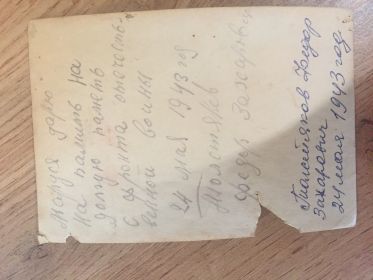 Маруся дарю
на память на
долгую память
с фронта отечеств
венной войны
24 мая 1943 год
Толстяков
Федор Захарович
Толстяков Федор
Захарович
24 мая 1943 год.